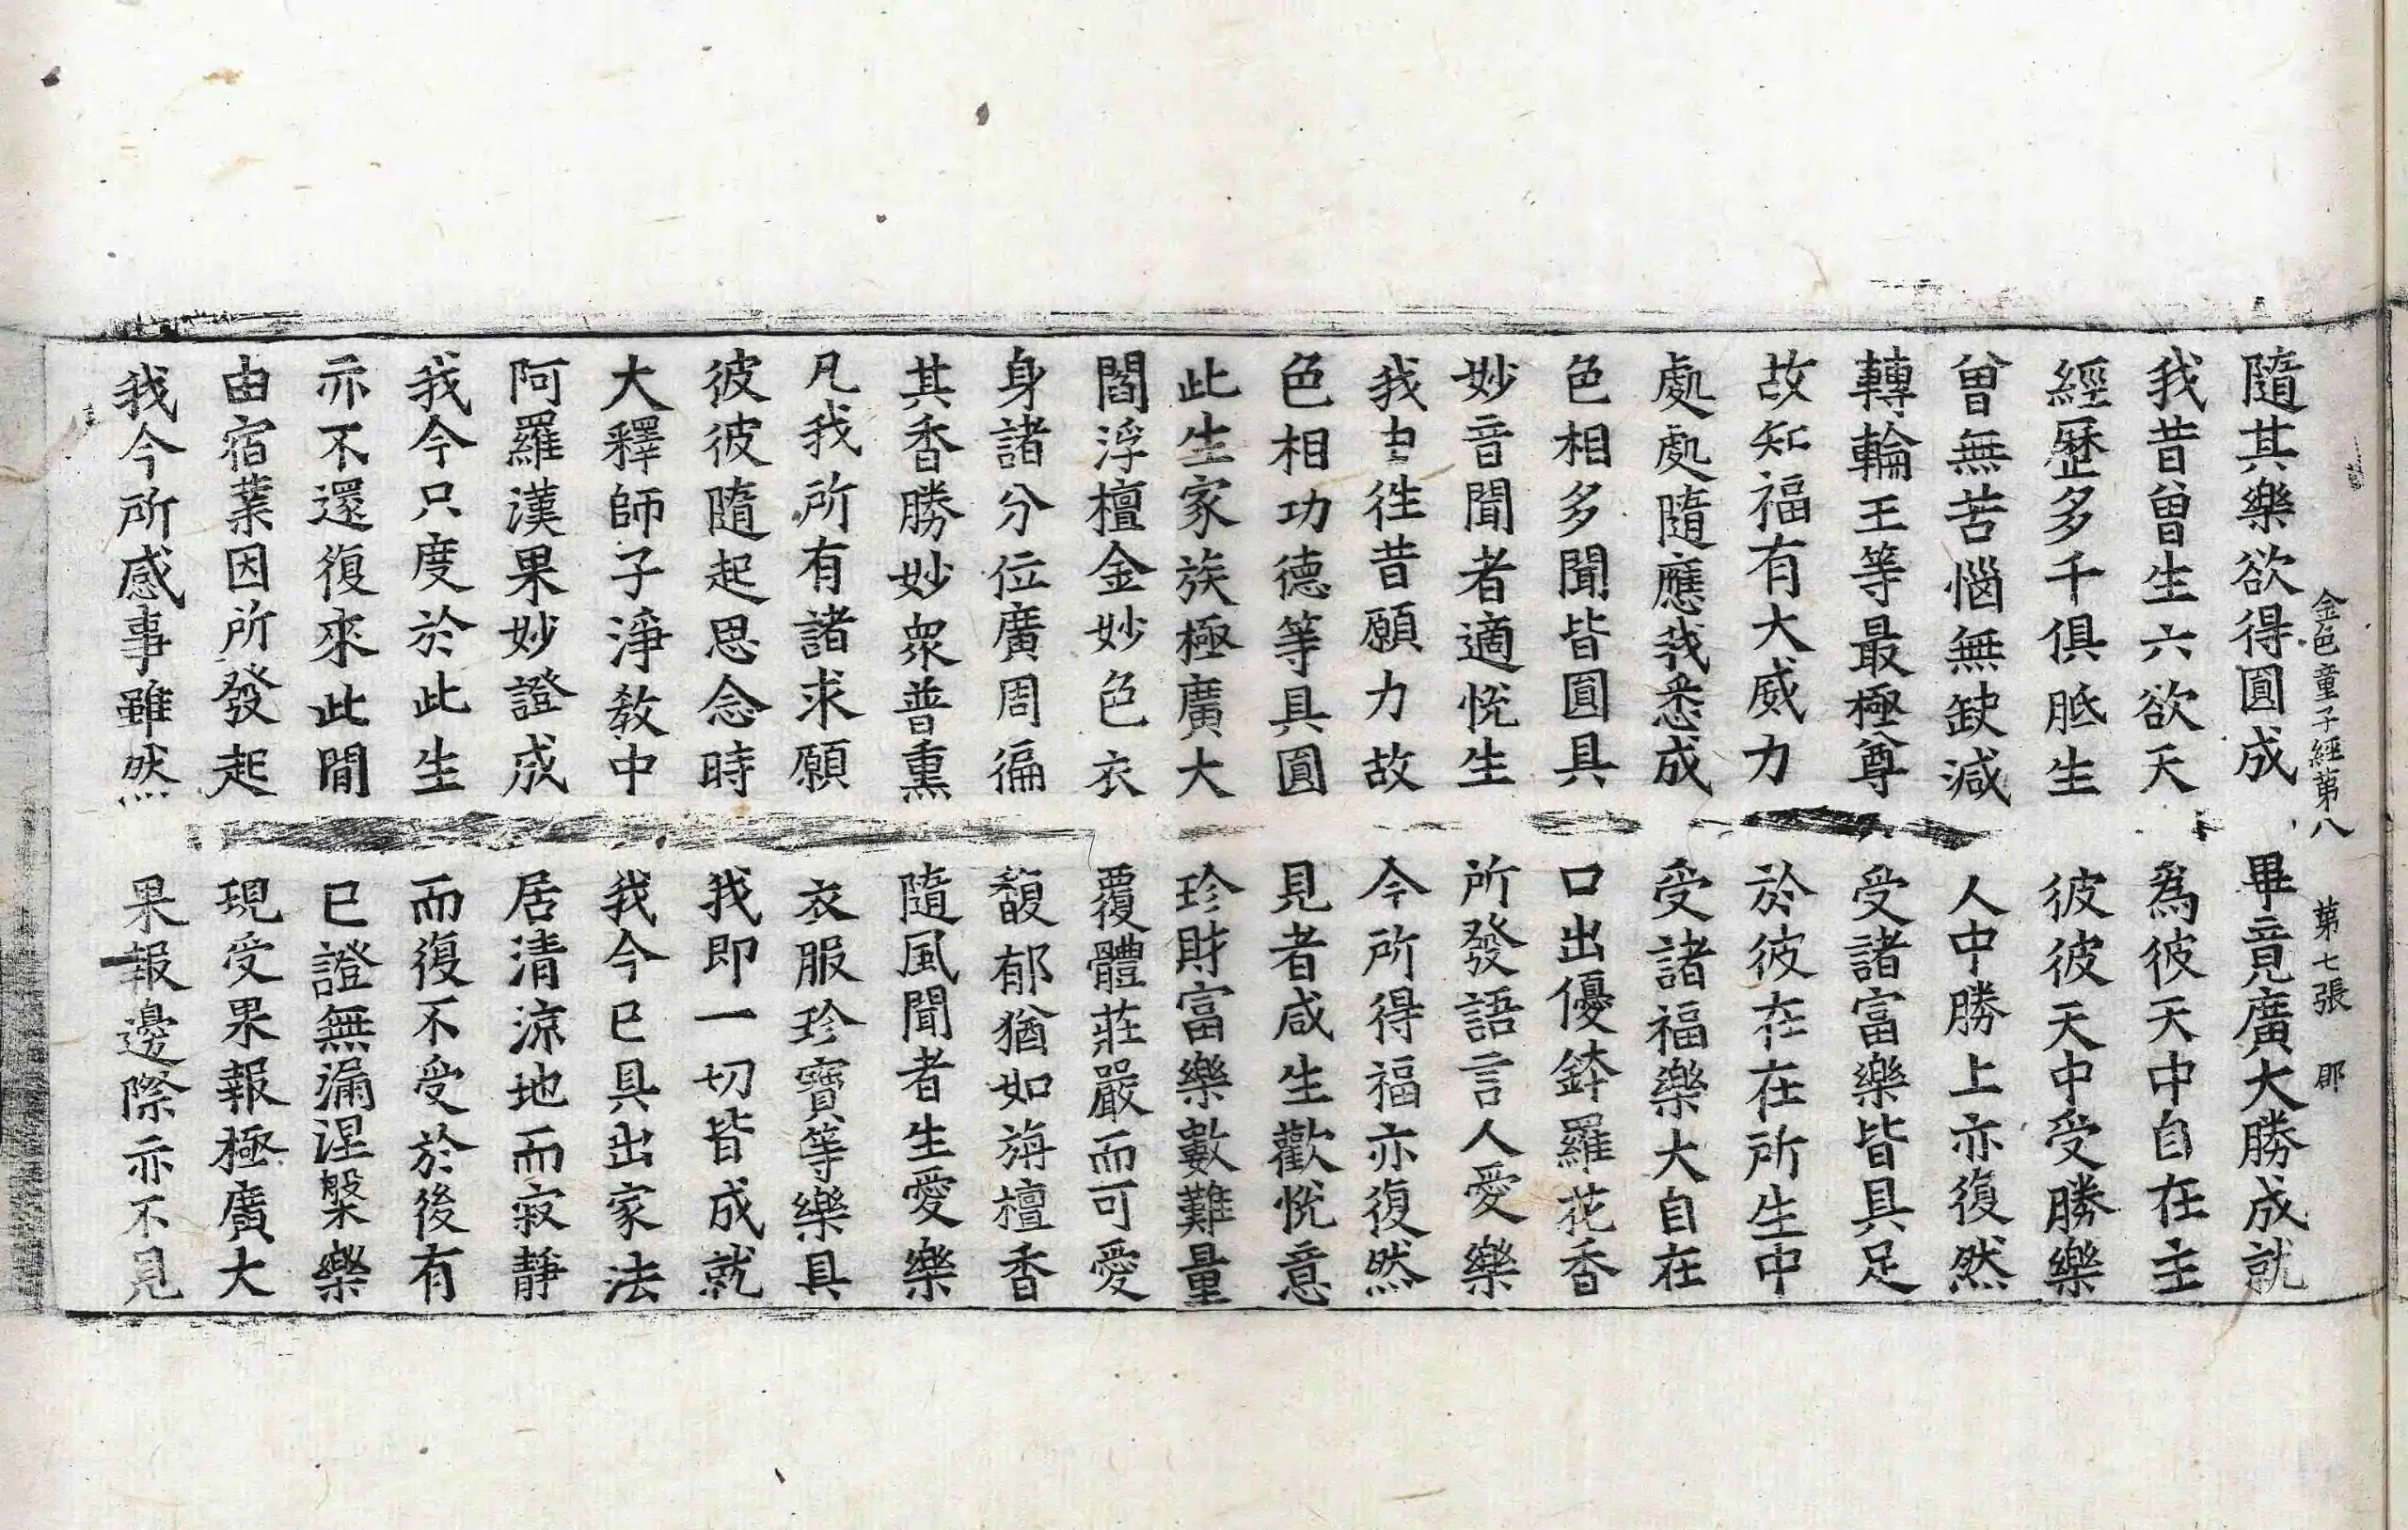 金色童子經第八　第七張　郡
隨其樂欲得圓成　畢竟廣大勝成就
我昔曾生六欲天　為彼天中自在主
經歷多千俱胝生　彼彼天中受勝樂
曾無苦惱無缺減　人中勝上亦復然
轉輪王等最極尊　受諸富樂皆具足
故知福有大威力　於彼在在所生中
處處隨應我悉成　受諸福樂大自在
色相多聞皆圓具　口出優鉢羅花香
妙音聞者適悅生　所發語言人愛樂
我由往昔願力故　今所得福亦復然
色相功德等具圓　見者咸生歡悅意
此生家族極廣大　珍財富樂數難量
閻浮檀金妙色衣　覆體莊嚴而可愛
身諸分位廣周徧　馥郁猶如旃檀香
其香勝妙衆普熏　隨風聞者生愛樂
凡我所有諸求願　衣服珍寶等樂具
彼彼隨起思念時　我即一切皆成就
大釋師子淨敎中　我今已具出家法
阿羅漢果妙證成　居清涼地而寂靜
我今只度於此生　而復不受於後有
亦不還復來此閒　已證無漏涅槃樂
由宿業因所發起　現受果報極廣大
我今所感事雖然　果報邊際亦不見